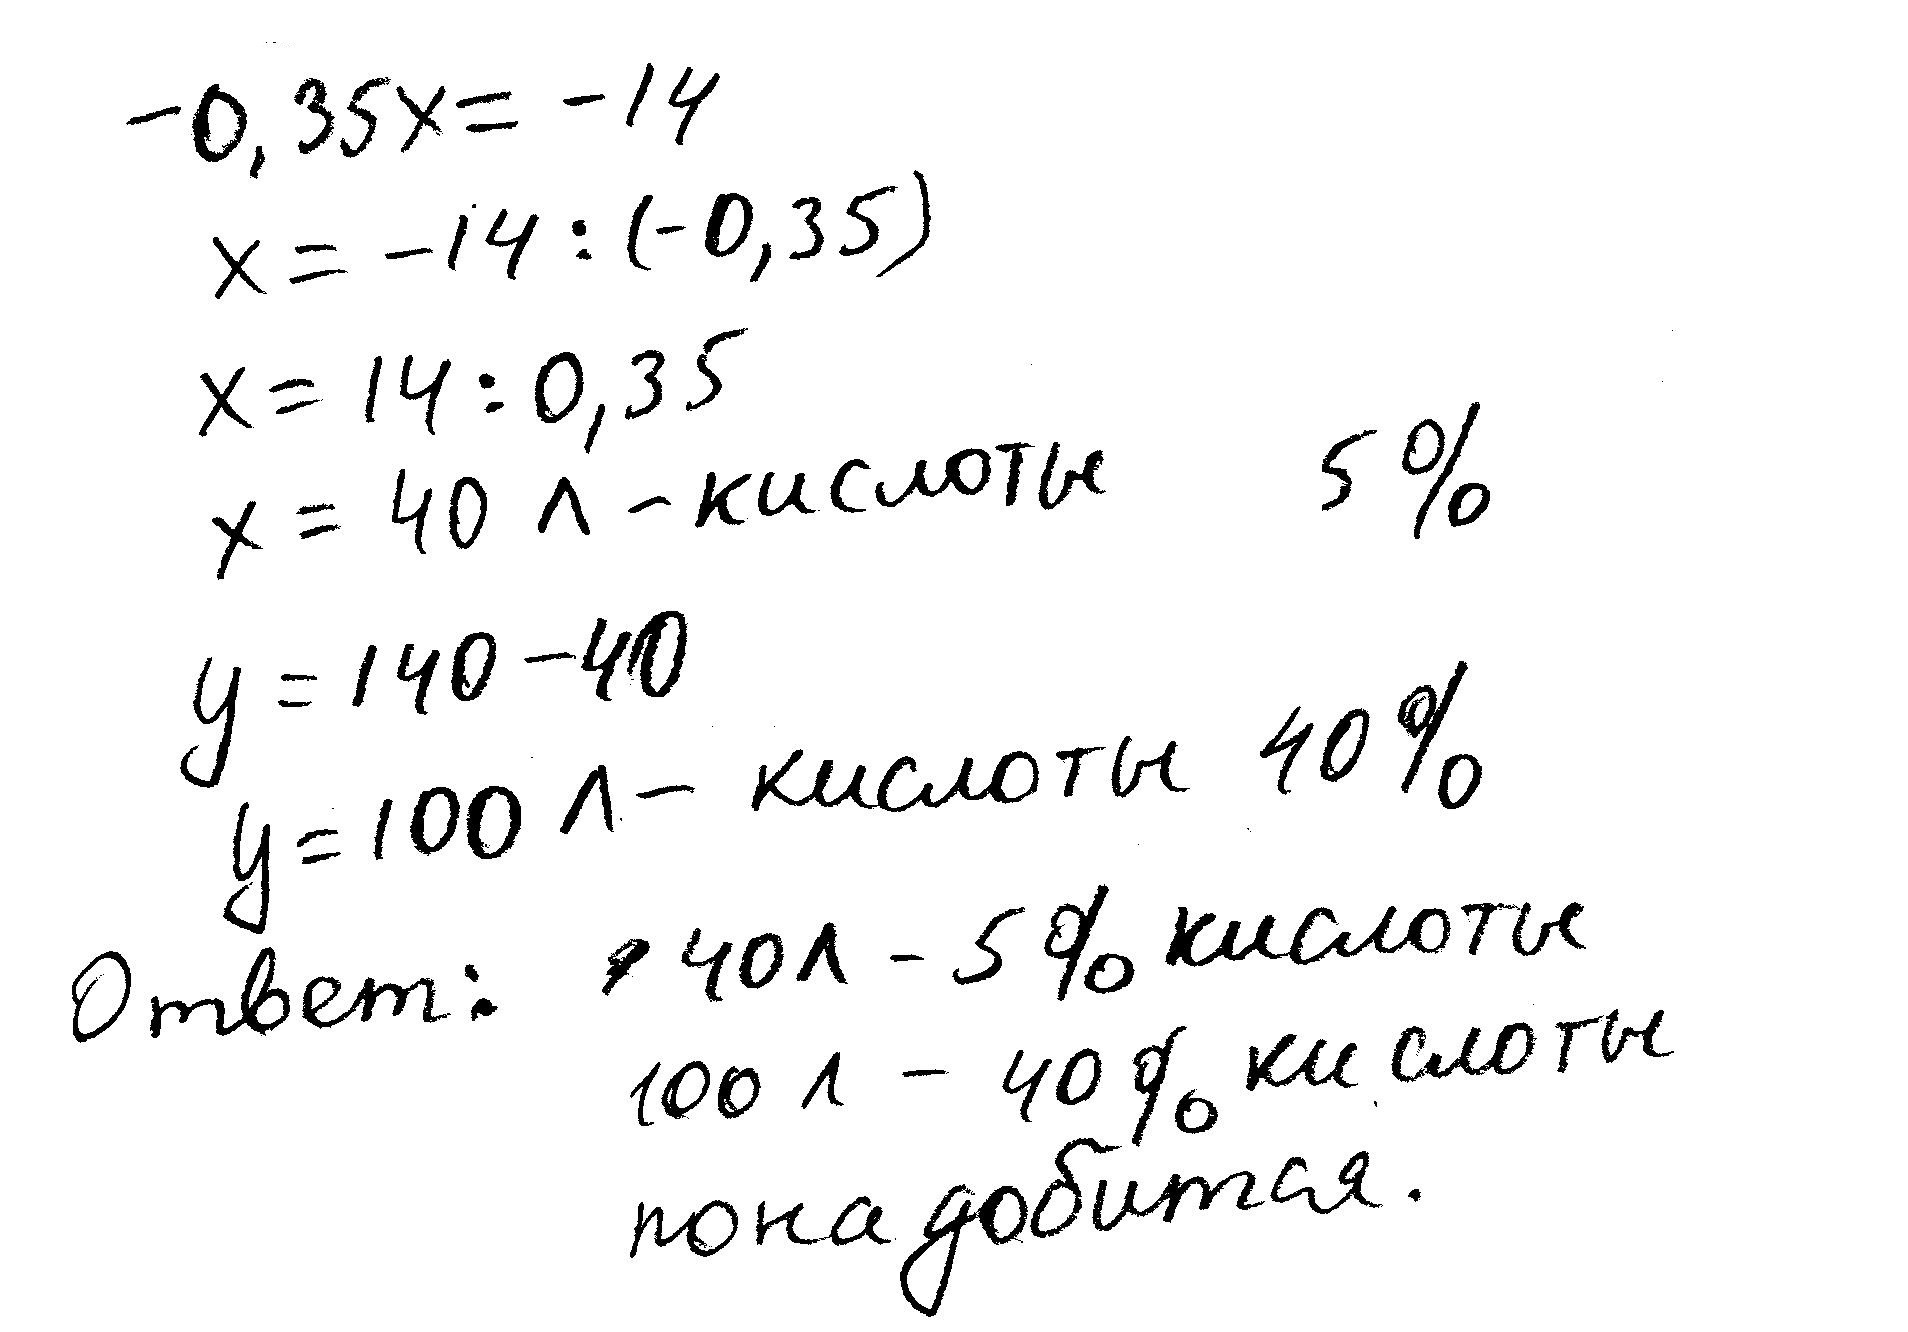 -0,35x = -14
x = -14 : (-0,35)
x = 14 : 0,35
x = 40 л - кислоты 5%
y = 140 - 40
y = 100 л - кислоты 40%
Ответ: 40л - 5% кислоты
100 л - 40% кислоты
понадобится.